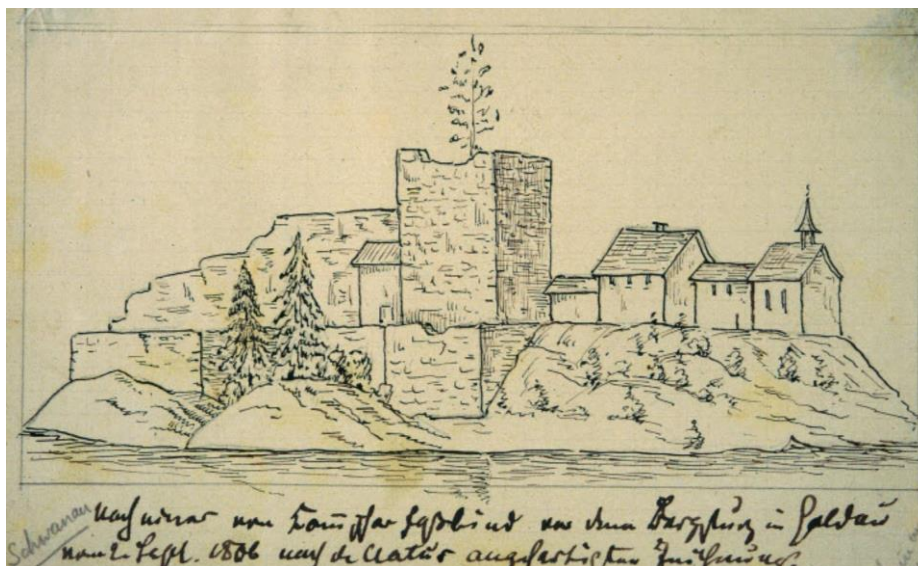 Schwanau
nach einer von Kom̄issar Faßbind vor dem Bergsturz in Goldau
vom 2. Sept. 1806 nach d. Natur angefertigten Zeichnung